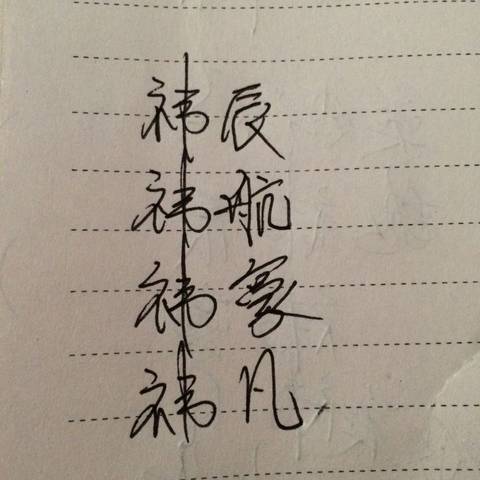 祎辰
祎航
祎
祎凡